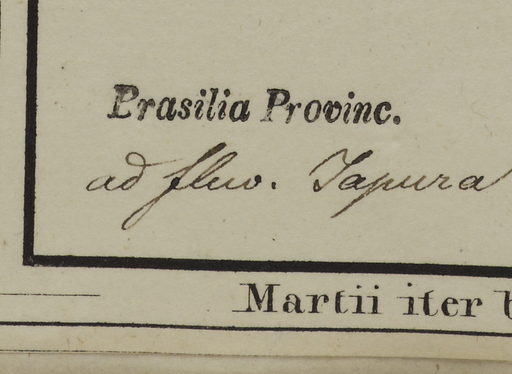 Brasilia Provinc.
ad fluv. Japura
Martii iter